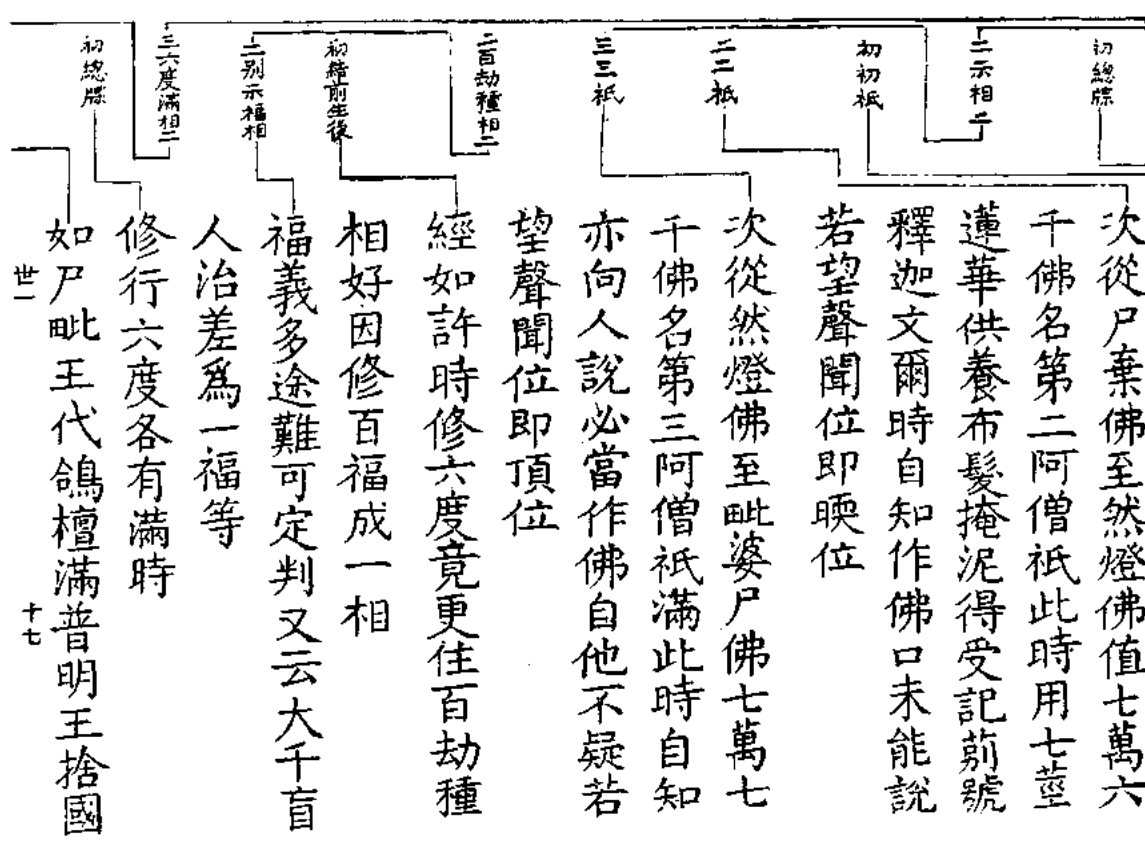 初總牒
二示相二
初初祇
二二祇
三三祇
二百劫種相二
初結前生後
二別示福相
三六度滿相二
初總牒
次從尸棄佛至然燈佛值七萬六
千佛名第二阿僧祇此時用七莖
蓮華供養布髮掩泥得受記莂號
釋迦文爾時自知作佛口未能說
若望聲聞位即㬉位
次從然燈佛至毗婆尸佛七萬七
千佛名第三阿僧祇滿此時自知
亦向人說必當作佛自他不疑若
望聲聞位即頂位
經如許時修六度竟更住百劫種
相好因修百福成一相
福義多途難可定判又云大千盲
人治差爲一福等
修行六度各有滿時
如尸毗王代鴿檀滿普明王捨國
世一
十七